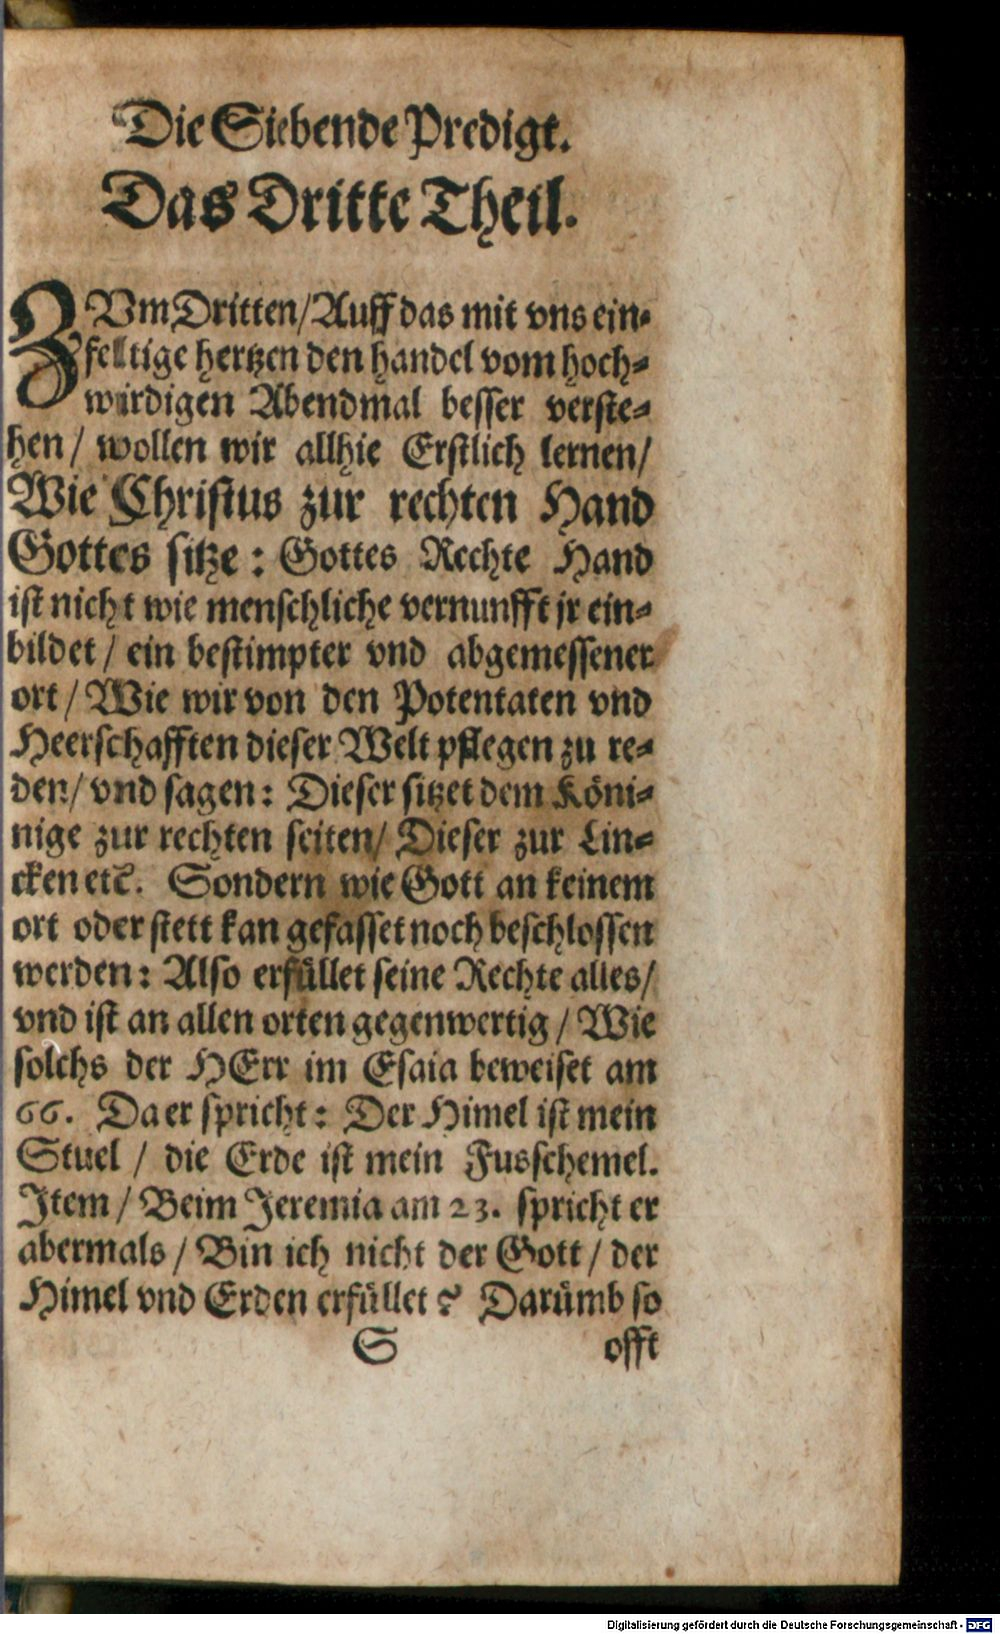 Die Siebende Predigt.
Das Dritte Theil.
ZVm Dritten/Auff das mit vns ein-
feltige hertzen den handel vom hoch-
wirdigen Abendmal besser verste-
hen/ wollen wir allhie Erstlich lernen/
Wie Christus zur rechten Hand
Gottes sitze: Gottes Rechte Hand
ist nicht wie menschliche vernunfft jr ein-
bildet/ ein bestimpter vnd abgemessener
ort/ Wie wir von den Potentaten vnd
Heerschafften dieser Welt pflegen zu re-
den/ vnd sagen: Dieser sitzet dem Köni-
nige zur rechten seiten/ Dieser zur Lin-
cken etc. Sondern wie Gott an keinem
ort oder stett kan gefasset noch beschlossen
werden: Also erfüllet seine Rechte alles/
vnd ist an allen orten gegenwertig/ Wie
solchs der HErr im Esaia beweiset am
66. Da er spricht: Der Himel ist mein
Stuel/ die Erde ist mein Fusschemel.
Item/ Beim Jeremia am 23. spricht er
abermals/ Bin ich nicht der Gott/ der
Himel vnd Erden erfüllet? Darümb so
S offt
Digitalisierung gefördert durch die Deutsche Forschungsgemeinschaft - DFG